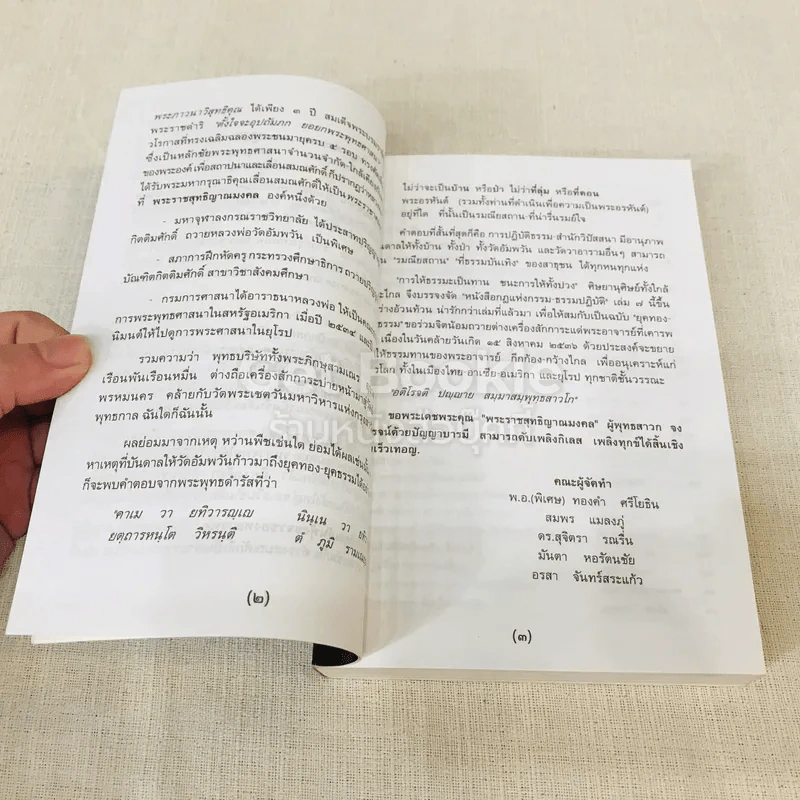 พระภาวนาวิสุทธิคุณ ได้เพียง ๓ ปี สมเด็จพระบรม
พระราชดำริ ทั้งใจจะอุปถัมภก ยอยกพระพุทธศาสนา
วโรกาสที่ทรงเฉลิมฉลองพระชนมายุครบ ๕ รอบ
ซึ่งเป็นหลักชัยพระพุทธศาสนาจำนวนจำกัด-ใกล้เคียง
ของพระองค์ เพื่อสถาปนาและเลื่อนสมณศักดิ์ ก็ปรากฏว่า
ได้รับพระมหากรุณาธิคุณเลื่อนสมณศักดิ์ให้เป็น พระราชา
ที่ พระราชสุทธิญาณมงคล องค์หนึ่งด้วย
- มหาจุฬาลงกรณราชวิทยาลัย ได้ประสาทปริญญา
กิตติมศักดิ์ ถวายหลวงพ่อวัดอัมพวัน เป็นพิเศษ
- สภาการฝึกหัดครู กระทรวงศึกษาธิการ ถวายปริญญา
บัณฑิตกิตติมศักดิ์ สาขาวิชาสังคมศึกษา
- กรมการศาสนาได้อาราธนาหลวงพ่อ ให้เป็น
การพระพุทธศาสนาในสหรัฐอเมริกา เมื่อปี ๒๕๓๔ และ
นิมนต์ให้ไปดูการพระศาสนาในยุโรป
รวมความว่า พุทธบริษัททั้งพระภิกษุสามเณร
เรือนพันเรือนหมื่น ต่างถือเครื่องสักการะบ่ายหน้ามา
พรหมนคร คล้ายกับวัดพระเชตวันมหาวิหารแห่งกรุง
พุทธกาล ฉันใดก็ฉันนั้น
ผลย่อมมาจากเหตุ หว่านพืชเช่นใด ย่อมได้ผลเช่นนั้น
หาเหตุที่บันดาลให้วัดอัมพวันก้าวมาถึงยุคทอง-ยุคธรรมได้
ก็จะพบคำตอบจากพระพุทธดำรัสที่ว่า
"คาเม วา ยทิวารญฺเญ นินฺเน วา ยทิ
ยตฺถารหนฺโต วิหรนฺติ ตํ ภูมิ
(๒)
ไม่ว่าจะเป็นบ้าน หรือป่า ไม่ว่าที่ลุ่ม หรือที่ดอน
พระอรหันต์ (รวมทั้งท่านที่ดำเนินเพื่อความเป็นพระอรหันต์)
อยู่ที่ใด ที่นั้นเป็นรมณียสถาน-ที่น่ารื่นรมย์ใจ
คำตอบที่สั้นที่สุดก็คือ การปฏิบัติธรรม-สำนักวิปัสสนา มีอานุภาพ
ดาลให้ทั้งบ้าน ทั้งป่า ทั้งวัดอัมพวัน และวัดวาอารามอื่นๆ สามารถ
"รมณียสถาน" "ที่ธรรมบันเทิง" ของสาธุชน ได้ทุกหนทุกแห่ง
"การให้ธรรมะเป็นทาน ชนะการให้ทั้งปวง" ศิษยานุศิษย์ทั้งใกล้
ไกล จึงบรรจงจัด "หนังสือกฎแห่งกรรม-ธรรมปฏิบัติ" เล่ม ๗ นี้ขึ้น
ร่างอ้วนท้วน น่ารักกว่าเล่มที่แล้วมา เพื่อให้สมกับเป็นฉบับ "ยุคทอง-
ธรรม" ขอร่วมจิตน้อมถวายต่างเครื่องสักการะแด่พระอาจารย์ที่เคารพ
เนื่องในวันคล้ายวันเกิด ๑๕ สิงหาคม ๒๕๓๖ ด้วยประสงค์จะขยาย
ให้ธรรมทานของพระอาจารย์ กึกก้อง-กว้างไกล เพื่ออนุเคราะห์แก่
วโลก ทั้งในเมืองไทย-อาเซีย-อเมริกา และยุโรป ทุกชาติชั้นวรรณะ
"อติโรจติ ปญฺญาย สมฺมาสมฺพุทฺธสาวโก"
ขอพระเดชพระคุณ "พระราชสุทธิญาณมงคล" ผู้พุทธสาวก จง
รจน์ด้วยปัญญาบารมี สามารถดับเพลิงกิเลส เพลิงทุกข์ได้สิ้นเชิง
เร็วเทอญ.
คณะผู้จัดทำ
พ.อ.(พิเศษ) ทองคำ ศรีโยธิน
สมพร แมลงภู่
ดร.สุจิตรา รณรื่น
มันตา หอรัตนชัย
อรสา จันทร์สระแก้ว
(๓)